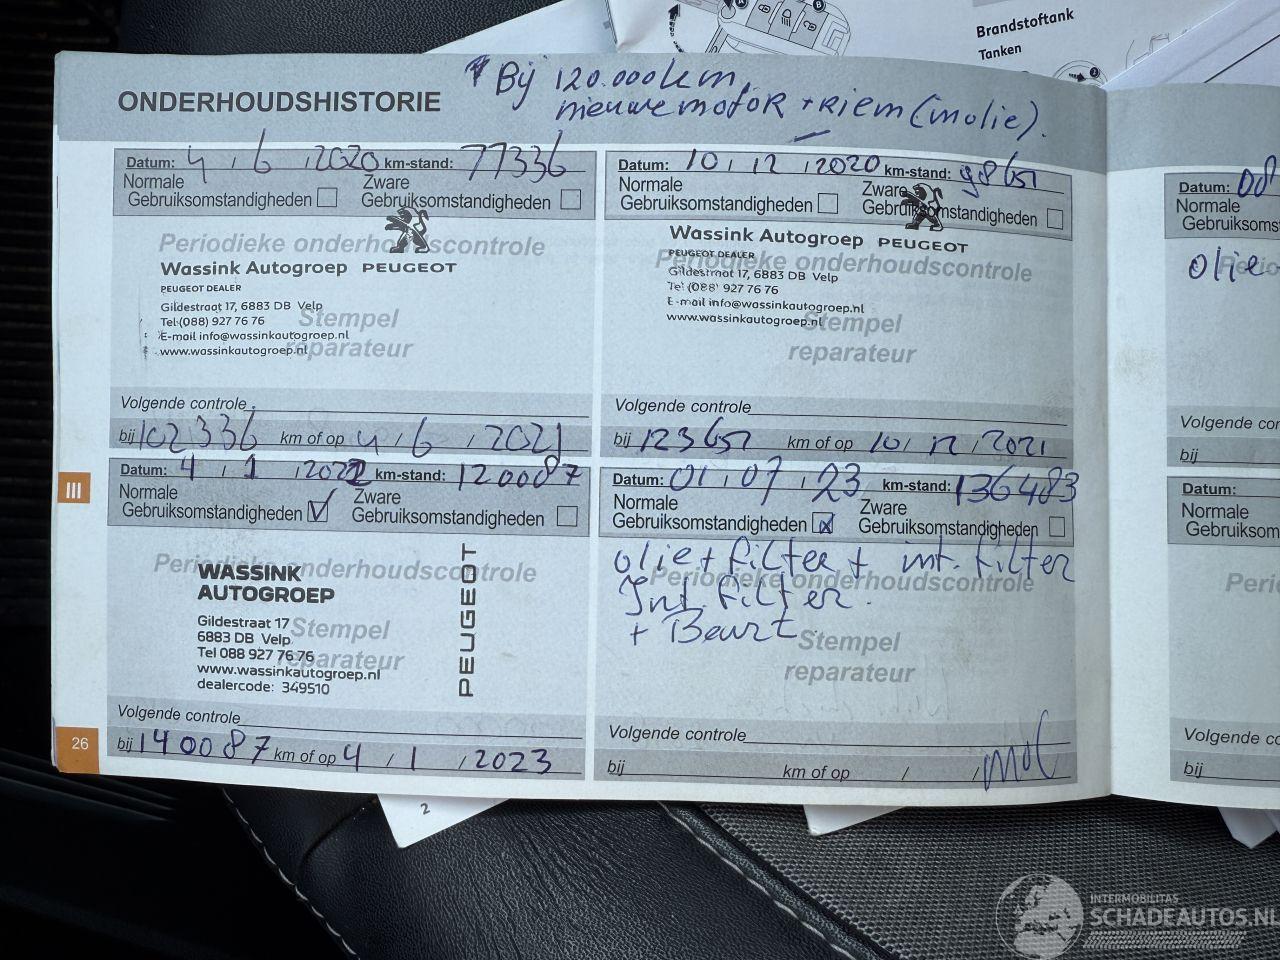 Brandstoftank
Tanken
* Bij 120.000km,
nieuwe motor + Riem (in olie).
ONDERHOUDSHISTORIE
Datum: 4 / 6 / 2020 km-stand: 77336
Normale Gebruiksomstandigheden
Zware Gebruiksomstandigheden
Periodieke onderhoudscontrole
Wassink Autogroep PEUGEOT
PEUGEOT DEALER
Gildestraat 17, 6883 DB Velp
Tel:(088) 927 76 76
E-mail info@wassinkautogroep.nl
www.wassinkautogroep.nl
Stempel
reparateur
Volgende controle
bij 102336 km of op 4 / 6 / 2021
Datum: 10 / 12 / 2020 km-stand:
Normale Gebruiksomstandigheden
Zware Gebruiksomstandigheden
Periodieke onderhoudscontrole
Wassink Autogroep PEUGEOT
PEUGEOT DEALER
Gildestraat 17, 6883 DB Velp
Tel:(088) 927 76 76
E-mail info@wassinkautogroep.nl
www.wassinkautogroep.nl
Stempel
reparateur
Volgende controle
bij km of op 10 / 12 / 2021
Datum: 4 / 1 / 2022 km-stand: 120087
Normale Gebruiksomstandigheden
Zware Gebruiksomstandigheden
Periodieke onderhoudscontrole
WASSINK
AUTOGROEP
PEUGEOT
Gildestraat 17
6883 DB Velp
Tel 088 927 76 76
www.wassinkautogroep.nl
dealercode: 349510
Stempel
reparateur
Volgende controle
bij 140087 km of op 4 / 1 / 2023
Datum: 01 / 07 / 23 km-stand: 136483
Normale Gebruiksomstandigheden x
Zware Gebruiksomstandigheden
olie + filter + int. filter
Periodieke onderhoudscontrole
Int. filter.
+ Beurt
Stempel
reparateur
Volgende controle
bij km of op / /
III
26
Datum: 08
Normale
Gebruiksomst
olie
Volgende co
bij
Datum:
Normale
Gebruiksom
Peri
Volgende co
bij
2
INTERMOBILITAS
SCHADEAUTOS.NL